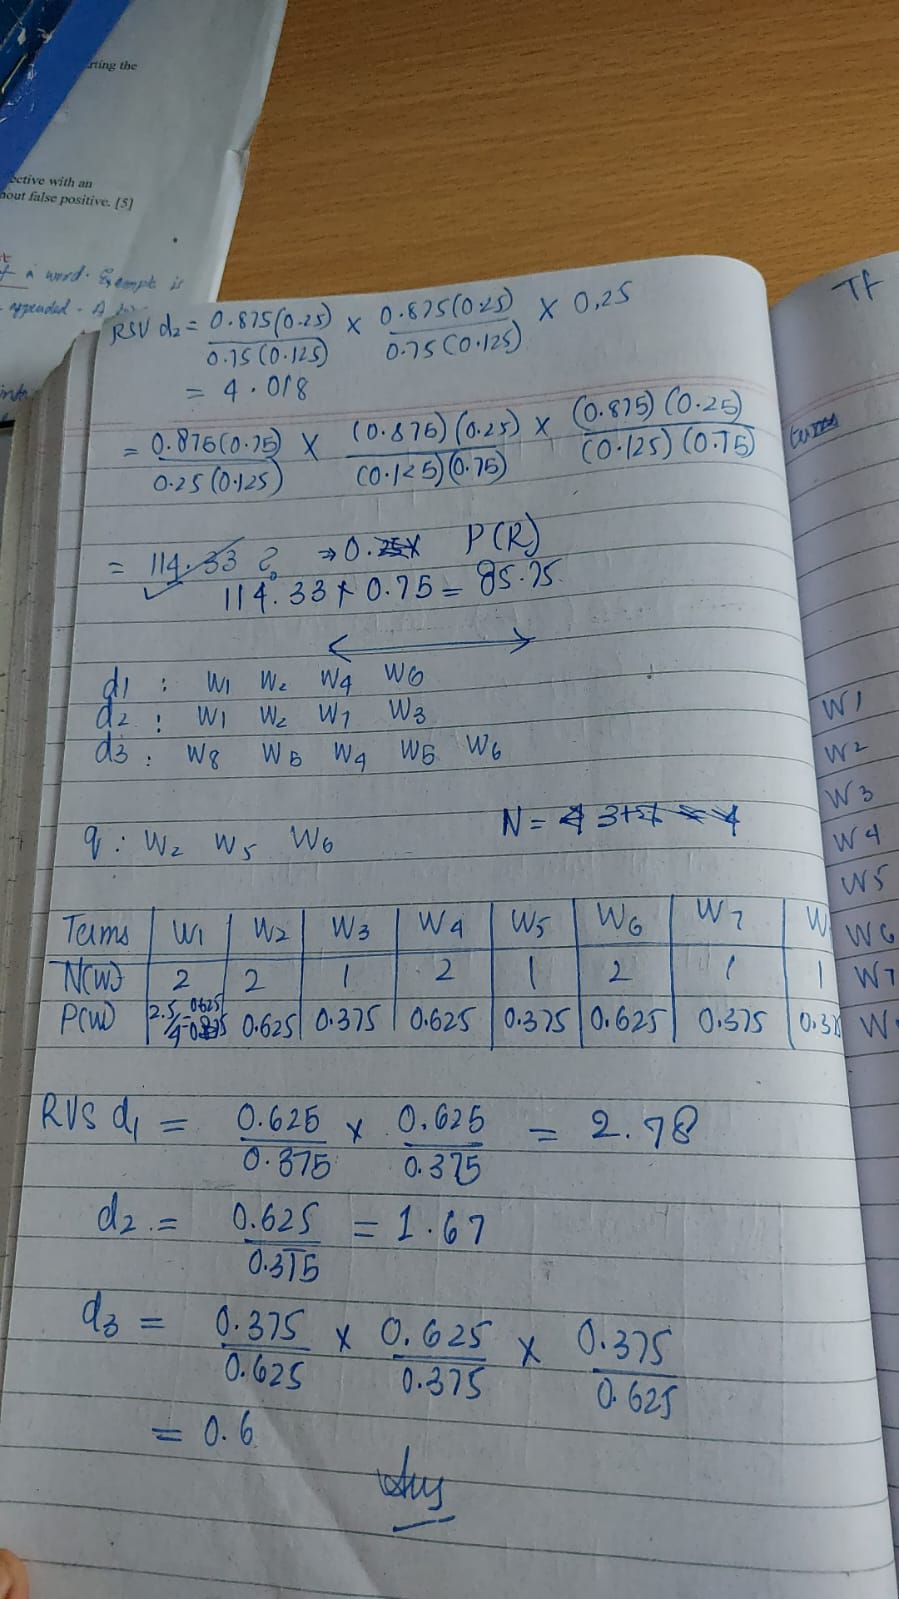 rting the
ective with an
out false positive. [5]
a word. Exempt is
appended. A
RSV d2 = 0.875(0.25)/0.75(0.125) × 0.875(0.25)/0.75(0.125) × 0.25
= 4.018
= 0.875(0.75)/0.25(0.125) × (0.875)(0.25)/(0.125)(0.75) × (0.875)(0.25)/(0.125)(0.75)
= 114.33 ? ⇒ 0. P(R)
114.33 × 0.75 = 85.75
d1 : W1 W2 W4 W6
d2 : W1 W2 W7 W3
d3 : W8 W5 W4 W5 W6
q : W2 W5 W6 N = 3+1 4
Terms W1 W2 W3 W4 W5 W6 W7 W
N(w) 2 2 1 2 1 2 1 1
P(w) 2.5/4 = 0.625 0.625 0.375 0.625 0.375 0.625 0.375 0.37
RVS d1 = 0.625/0.375 × 0.625/0.375 = 2.78
d2 = 0.625/0.375 = 1.67
d3 = 0.375/0.625 × 0.625/0.375 × 0.375/0.625
= 0.6
Ans
Tf
W1
W2
W3
W4
W5
W6
W7
W